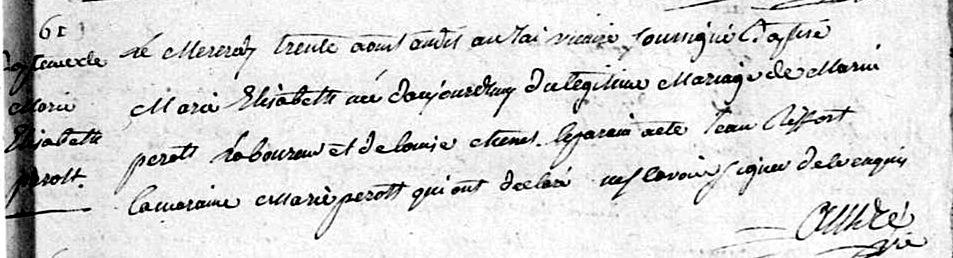 61
Bapteme de
Marie
Elisabeth
perott.
Le Mecredy trente aoust audit an J'ai vicaire soussigné Baptisé
Marie Elisabeth née d'aujourd'huy du legitime Mariage de Marin
perott Laboureur et de Louise chenet. le parain a ete Jean Riffort
la maraine Marie perott qui ont declaré ne scavoir signer de ce enquis
vic